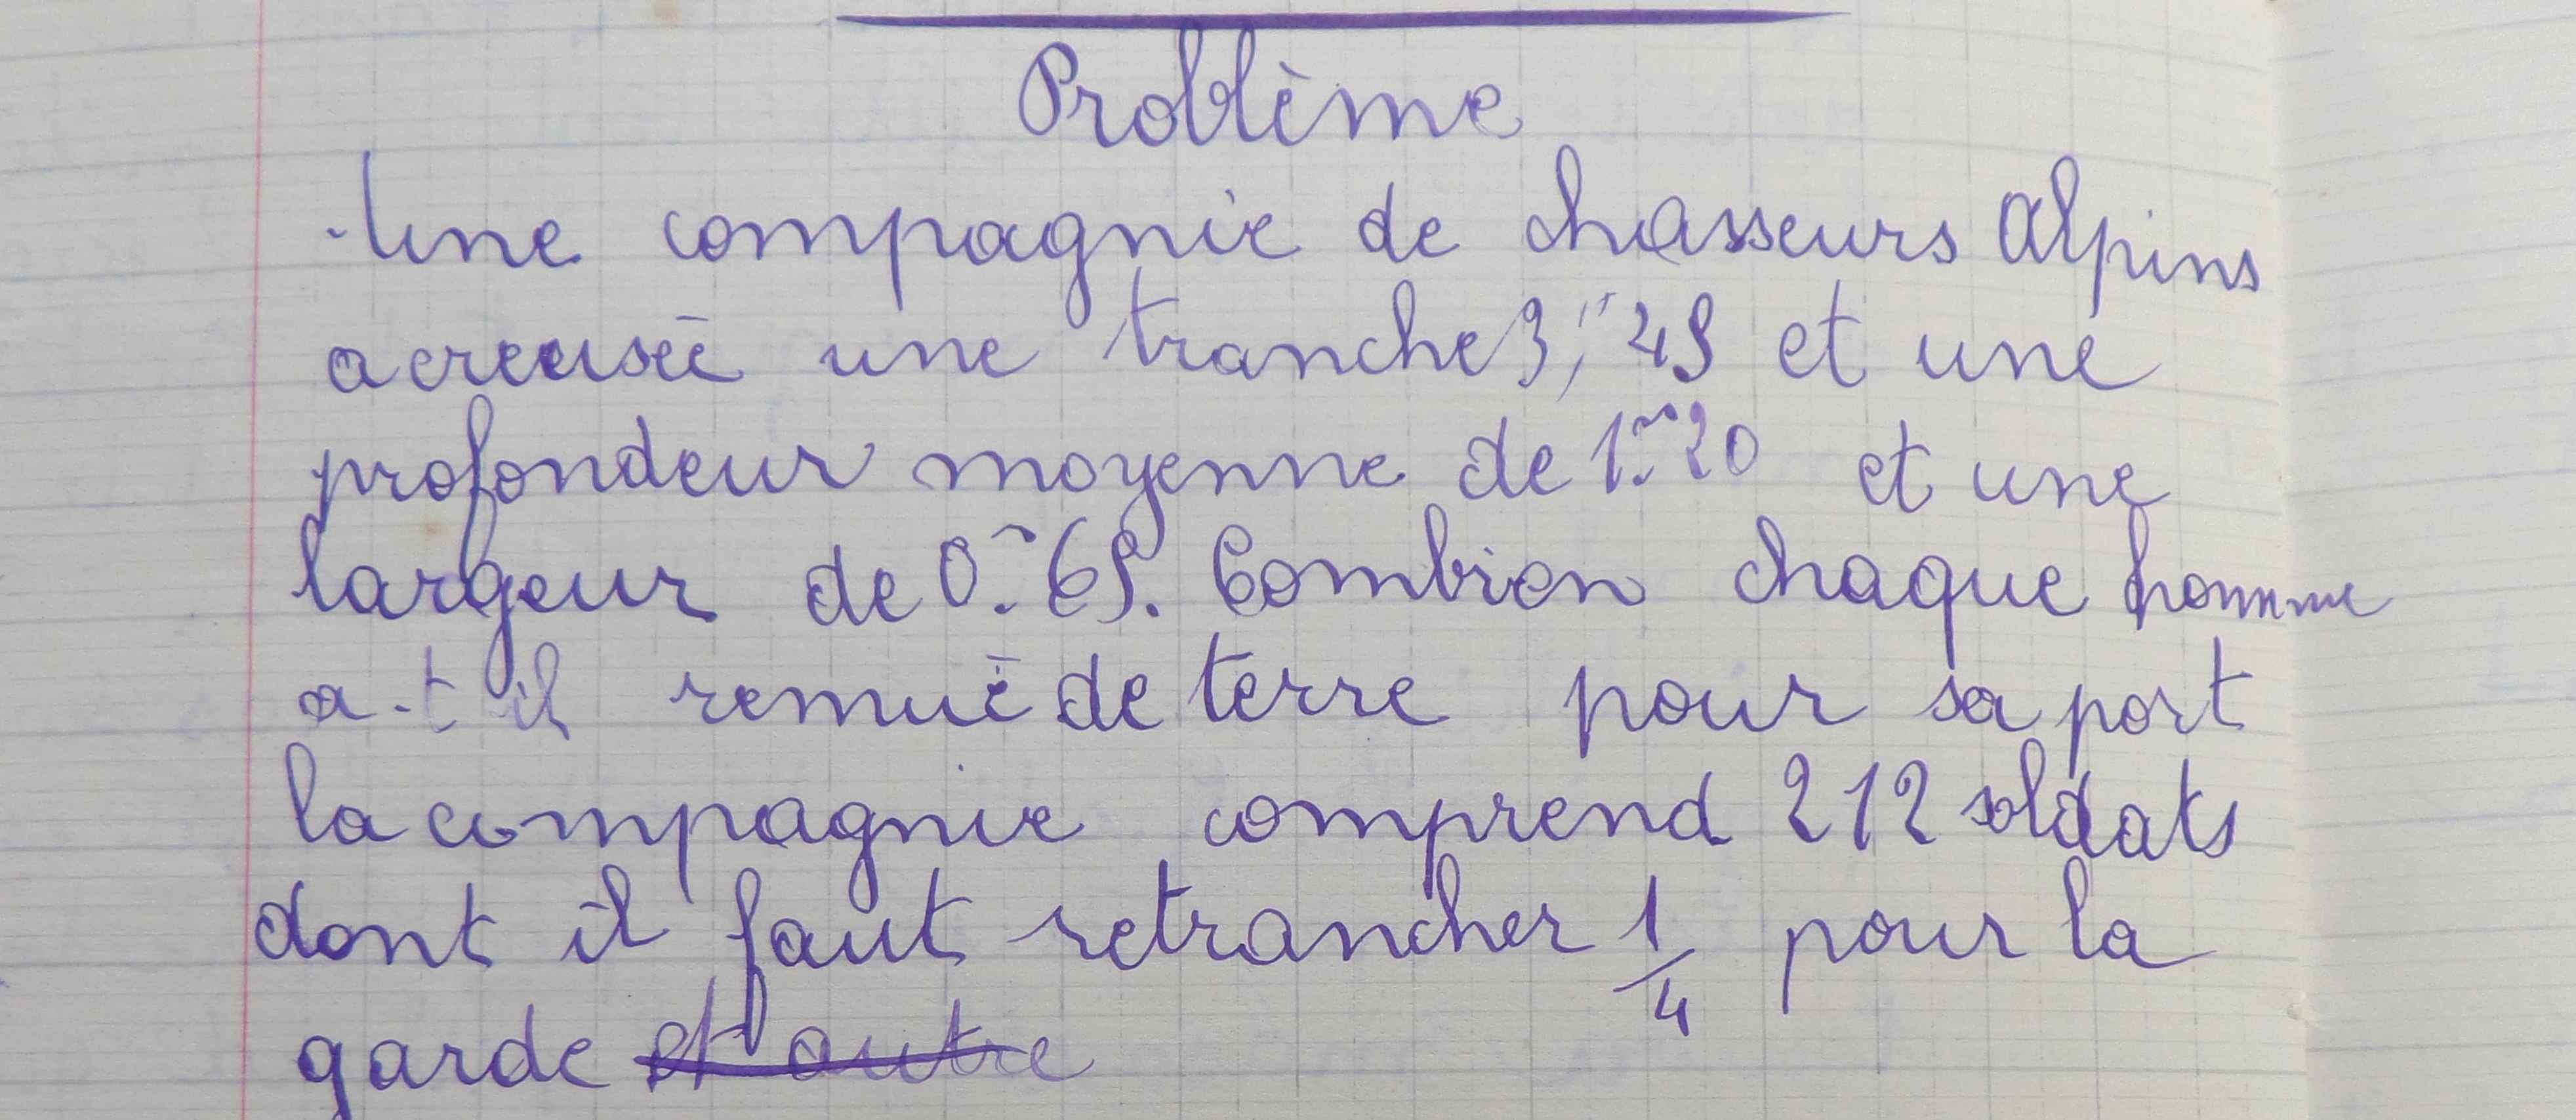 Problème
Une compagnie de chasseurs Alpins
a creusée une tranche 3,m 45 et une
profondeur moyenne de 1.m 20 et une
largeur de 0.m 65. Combien chaque homme
a-t il remué de terre pour sa part
la compagnie comprend 212 soldats
dont il faut retrancher 1/4 pour la
garde et autre